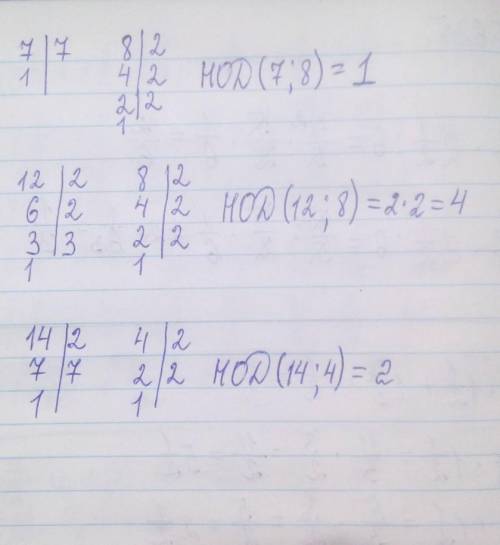 7 | 7 8 | 2
1 | 4 | 2 НОД (7; 8) = 1
2 | 2
1
12 | 2 8 | 2
6 | 2 4 | 2 НОД (12; 8) = 2·2 = 4
3 | 3 2 | 2
1 1
14 | 2 4 | 2
7 | 7 2 | 2 НОД (14; 4) = 2
1 | 1